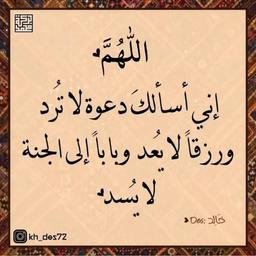 اللّٰهُمَّ
إني أسألكَ دعوة لا تُرد
ورزقاً لا يُعد وباباً إلى الجنة
لا يُسد
Des: خالد
kh_des72